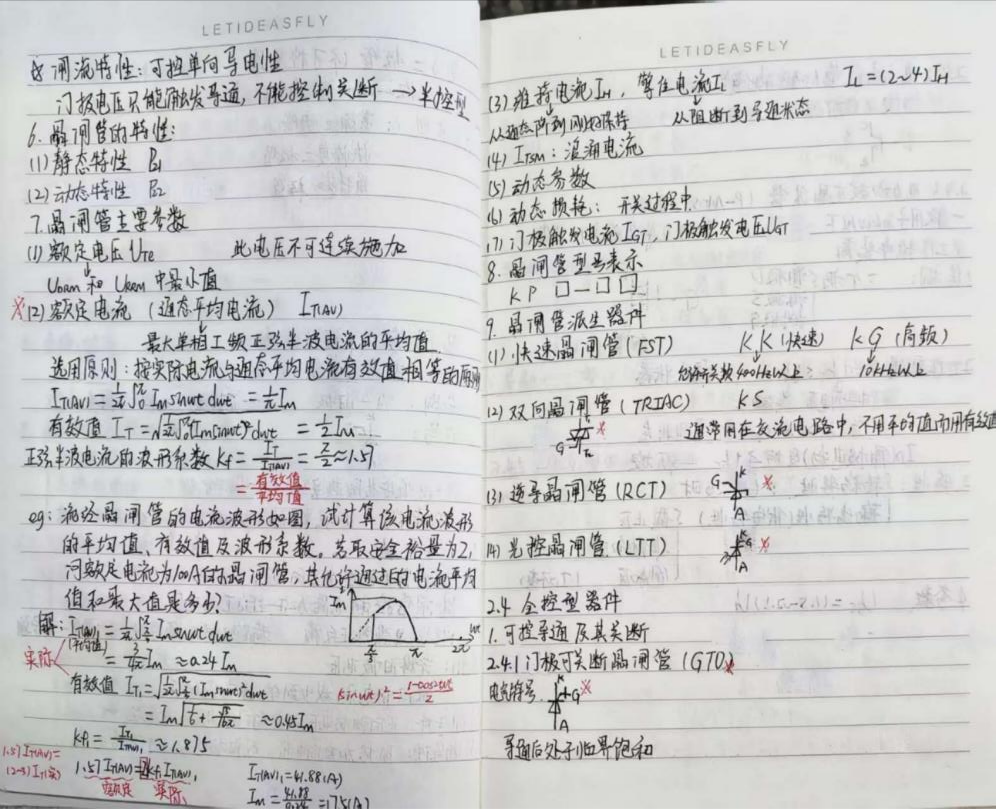 LETIDEASFLY
闸流特性：可控单向导电性
门极电压只能触发导通，不能控制关断 → 半控型
6. 晶闸管的特性：
(1) 静态特性 P61
(2) 动态特性 P62
7. 晶闸管主要参数
(1) 额定电压 UTe 此电压不可连续施加
UDRM 和 URRM 中最小值
※(2) 额定电流 (通态平均电流) IT(AV)
最大单相工频正弦半波电流的平均值
选用原则：按实际电流与通态平均电流有效值相等的原则
IT(AV) = 1/2π ∫₀^π Im sinwt dwt = 1/π Im
有效值 IT = √(1/2π ∫₀^π (Im sinwt)² dwt) = 1/2 Im
正弦半波电流的波形系数 kf = IT/IT(AV) = π/2 ≈ 1.57
= 有效值/平均值
eg: 流经晶闸管的电流波形如图，试计算该电流波形
的平均值、有效值及波形系数。若取安全裕量为2，
问额定电流为100A的晶闸管，其允许通过的电流平均
值和最大值是多少？
Im π/3 π 2π wt
解：IT(AV)₁ = 1/2π ∫ Im sinwt dwt
(平均值)
实际
= 3/4π Im ≈ 0.24 Im
有效值 IT₁ = √(1/2π ∫ (Im sinwt)² dwt) (sinwt)² = (1-cos2wt)/2
= Im √(1/6 + √3/16π) ≈ 0.45 Im
kf₁ = IT₁/IT(AV)₁ ≈ 1.875
1.57 IT(AV) =
(2~3) IT(实)
1.57 IT(AV) = 2kf₁ IT(AV)₁ IT(AV)₁ = 41.88 (A)
额定 实际 Im = 41.88/0.24 = 175 (A)
LETIDEASFLY
(3) 维持电流 IH， 擎住电流 IL IL = (2~4) IH
从通态 从阻断到导通状态
(4) ITSM：浪涌电流
(5) 动态参数
(6) 动态损耗：开关过程中
(7) 门极触发电流 IGT，门极触发电压 UGT
8. 晶闸管型号表示
K P □—□□
9. 晶闸管派生器件
(1) 快速晶闸管 (FST) KK (快速) KG (高频)
允许开关频 400Hz以上 10kHz以上
(2) 双向晶闸管 (TRIAC) KS
G 通常用在交流电路中，不用平均值而用有效值
(3) 逆导晶闸管 (RCT) G K A
(4) 光控晶闸管 (LTT) K G A
2.4 全控型器件
1. 可控导通及其关断
2.4.1 门极可关断晶闸管 (GTO)
电气符号 K G A
导通后处于临界饱和